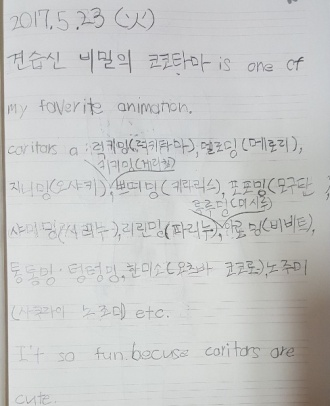 2017.5.23 (火)
견습신 비밀의 코코타마 is one of
my faverite animation.
caritors a : 럭키밍(럭키타마), 멜로딩(메로리),
지니밍(오샤키), 쁘띠밍(키라리스), 포포밍(모구탄),
프루딩(미시루)
리린밍(파리누), (비비트),
통통밍·텅텅밍, 한미소(요츠바 코코로), 노주미
노조미) etc.
I't so fun. becuse caritors are
cute.